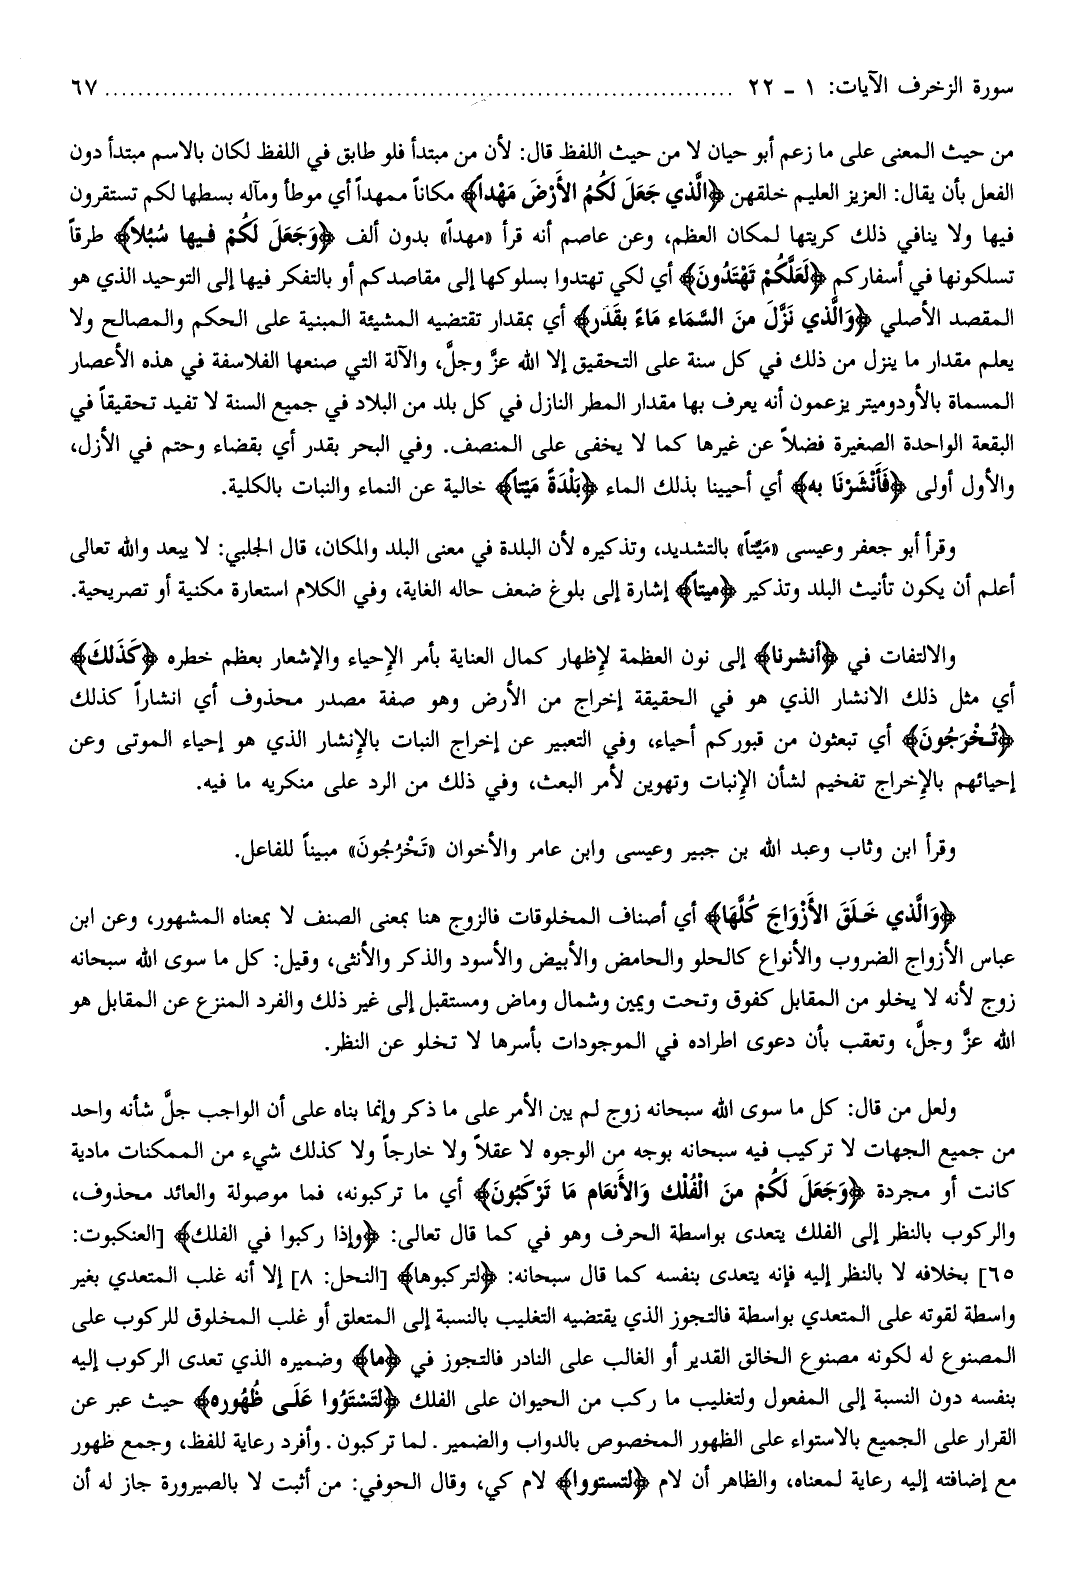 سورة الزخرف الآيات: ١ ـ ٢٢ ........................................................................... ٦٧
من حيث المعنى على ما زعم أبو حيان لا من حيث اللفظ قال: لأن من مبتدأ فلو طابق في اللفظ لكان بالاسم مبتدأ دون
الفعل بأن يقال: العزيز العليم خلقهن ﴿الَّذي جَعَلَ لَكُمُ الأَرْضَ مَهْداً﴾ مكاناً ممهداً أي موطأ ومآله بسطها لكم تستقرون
فيها ولا ينافي ذلك كريتها لمكان العظم، وعن عاصم أنه قرأ «مهداً» بدون ألف ﴿وَجَعَلَ لَكُمْ فيها سُبُلاً﴾ طرقاً
تسلكونها في أسفاركم ﴿لَعَلَّكُمْ تَهْتَدُونَ﴾ أي لكي تهتدوا بسلوكها إلى مقاصدكم أو بالتفكر فيها إلى التوحيد الذي هو
المقصد الأصلي ﴿وَالَّذي نَزَّلَ منَ السَّمَاء مَاءً بقَدَر﴾ أي بمقدار تقتضيه المشيئة المبنية على الحكم والمصالح ولا
يعلم مقدار ما ينزل من ذلك في كل سنة على التحقيق إلا الله عزَّ وجلَّ، والآلة التي صنعها الفلاسفة في هذه الأعصار
المسماة بالأودوميتر يزعمون أنه يعرف بها مقدار المطر النازل في كل بلد من البلاد في جميع السنة لا تفيد تحقيقاً في
البقعة الواحدة الصغيرة فضلاً عن غيرها كما لا يخفى على المنصف. وفي البحر بقدر أي بقضاء وحتم في الأزل،
والأول أولى ﴿فَأَنْشَرْنَا به﴾ أي أحيينا بذلك الماء ﴿بَلْدَةً مَيْتاً﴾ خالية عن النماء والنبات بالكلية.
وقرأ أبو جعفر وعيسى «مَيِّتاً» بالتشديد، وتذكيره لأن البلدة في معنى البلد والمكان، قال الجلبي: لا يبعد والله تعالى
أعلم أن يكون تأنيث البلد وتذكير ﴿ميتاً﴾ إشارة إلى بلوغ ضعف حاله الغاية، وفي الكلام استعارة مكنية أو تصريحية.
والالتفات في ﴿أنشرنا﴾ إلى نون العظمة لإظهار كمال العناية بأمر الإحياء والإشعار بعظم خطره ﴿كَذَلكَ﴾
أي مثل ذلك الانشار الذي هو في الحقيقة إخراج من الأرض وهو صفة مصدر محذوف أي انشاراً كذلك
﴿تُخْرَجُونَ﴾ أي تبعثون من قبوركم أحياء، وفي التعبير عن إخراج النبات بالإنشار الذي هو إحياء الموتى وعن
إحيائهم بالإخراج تفخيم لشأن الإنبات وتهوين لأمر البعث، وفي ذلك من الرد على منكريه ما فيه.
وقرأ ابن وثاب وعبد الله بن جبير وعيسى وابن عامر والأخوان «تَخْرُجُونَ» مبيناً للفاعل.
﴿وَالَّذي خَلَقَ الأَزْوَاجَ كُلَّهَا﴾ أي أصناف المخلوقات فالزوج هنا بمعنى الصنف لا بمعناه المشهور، وعن ابن
عباس الأزواج الضروب والأنواع كالحلو والحامض والأبيض والأسود والذكر والأنثى، وقيل: كل ما سوى الله سبحانه
زوج لأنه لا يخلو من المقابل كفوق وتحت ويمين وشمال وماض ومستقبل إلى غير ذلك والفرد المنزع عن المقابل هو
الله عزَّ وجلَّ، وتعقب بأن دعوى اطراده في الموجودات بأسرها لا تخلو عن النظر.
ولعل من قال: كل ما سوى الله سبحانه زوج لم يبن الأمر على ما ذكر وإنما بناه على أن الواجب جلَّ شأنه واحد
من جميع الجهات لا تركيب فيه سبحانه بوجه من الوجوه لا عقلاً ولا خارجاً ولا كذلك شيء من الممكنات مادية
كانت أو مجردة ﴿وَجَعَلَ لَكُمْ منَ الْفُلْك وَالأَنعَام مَا تَرْكَبُونَ﴾ أي ما تركبونه، فما موصولة والعائد محذوف،
والركوب بالنظر إلى الفلك يتعدى بواسطة الحرف وهو في كما قال تعالى: ﴿وإذا ركبوا في الفلك﴾ [العنكبوت:
٦٥] بخلافه لا بالنظر إليه فإنه يتعدى بنفسه كما قال سبحانه: ﴿لتركبوها﴾ [النحل: ٨] إلا أنه غلب المتعدي بغير
واسطة لقوته على المتعدي بواسطة فالتجوز الذي يقتضيه التغليب بالنسبة إلى المتعلق أو غلب المخلوق للركوب على
المصنوع له لكونه مصنوع الخالق القدير أو الغالب على النادر فالتجوز في ﴿ما﴾ وضميره الذي تعدى الركوب إليه
بنفسه دون النسبة إلى المفعول ولتغليب ما ركب من الحيوان على الفلك ﴿لتَسْتَوُوا عَلَى ظُهُوره﴾ حيث عبر عن
القرار على الجميع بالاستواء على الظهور المخصوص بالدواب والضمير. لما تركبون. وأفرد رعاية للفظ، وجمع ظهور
مع إضافته إليه رعاية لمعناه، والظاهر أن لام ﴿لتستووا﴾ لام كي، وقال الحوفي: من أثبت لا بالصيرورة جاز له أن